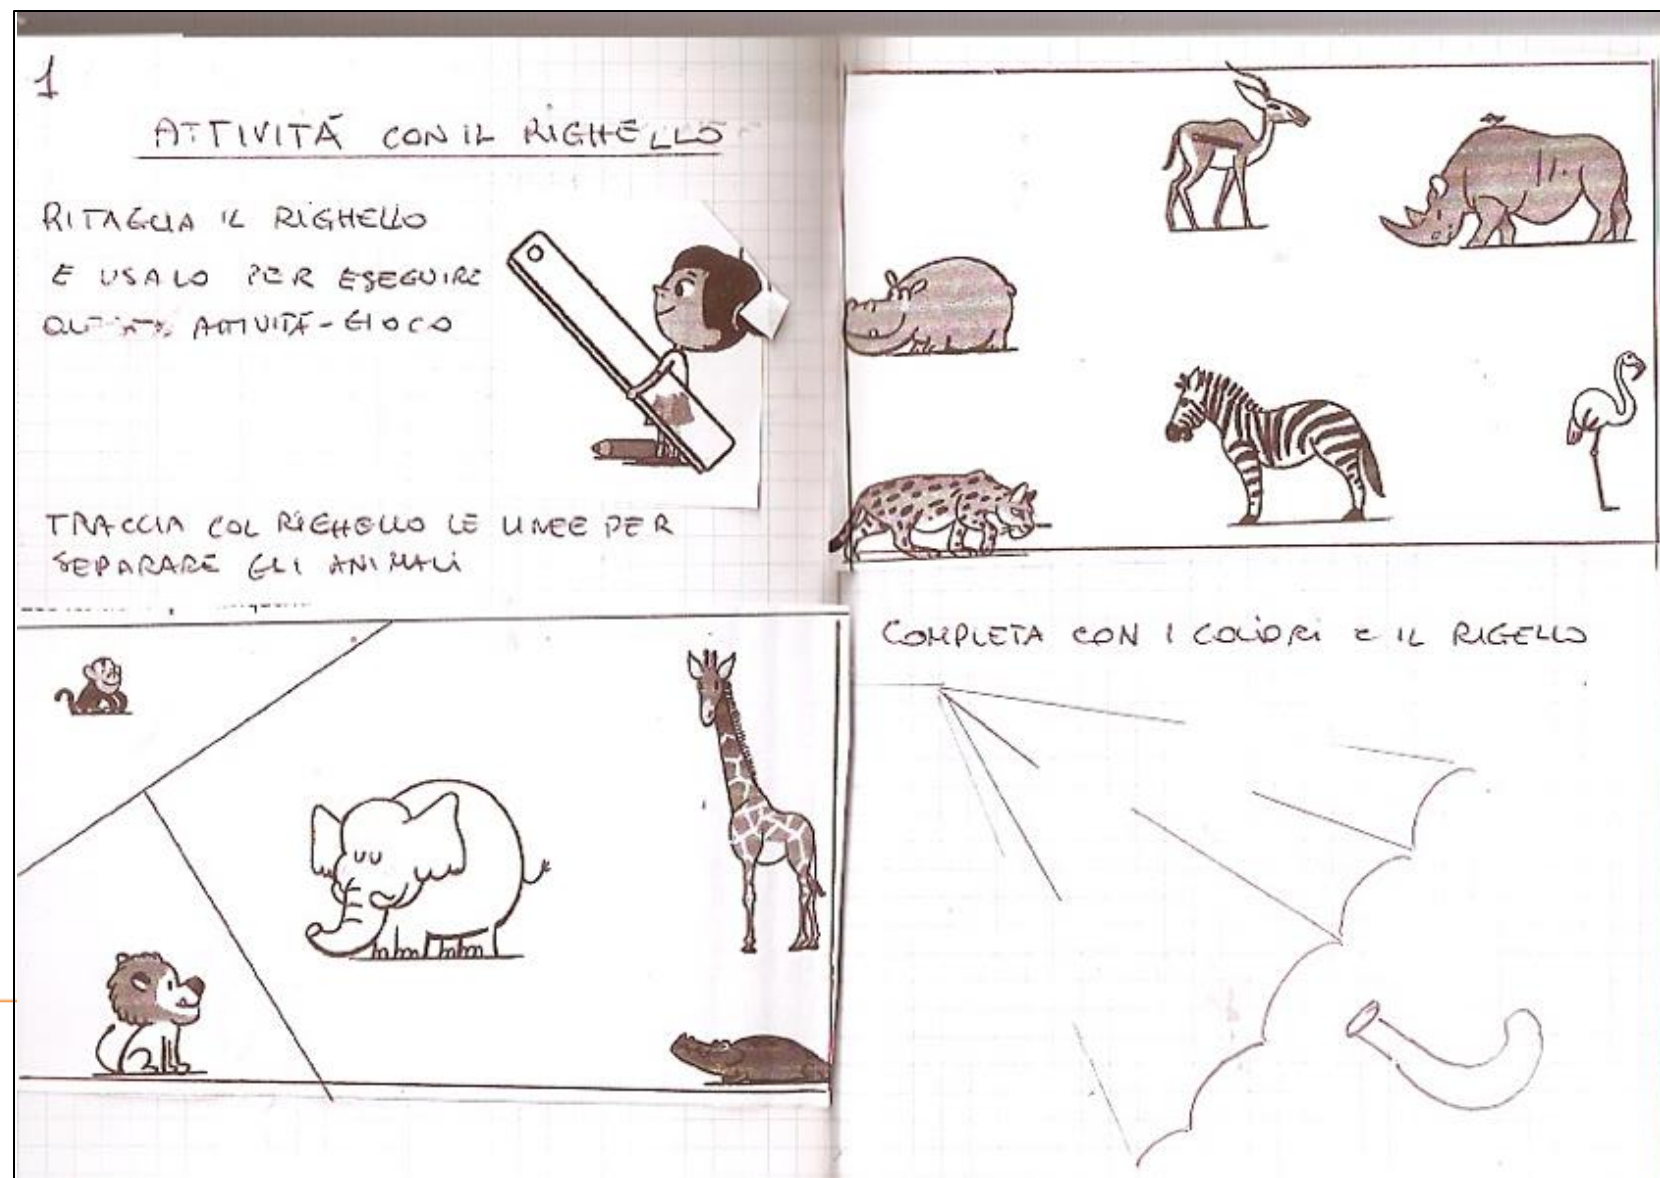 1
ATTIVITÀ CON IL RIGHELLO
RITAGLIA IL RIGHELLO
E USALO PER ESEGUIRE
ATTIVITÀ-GIOCO
TRACCIA COL RIGHELLO LE LINEE PER
SEPARARE GLI ANIMALI
COMPLETA CON I COLORI E IL RIGELLO